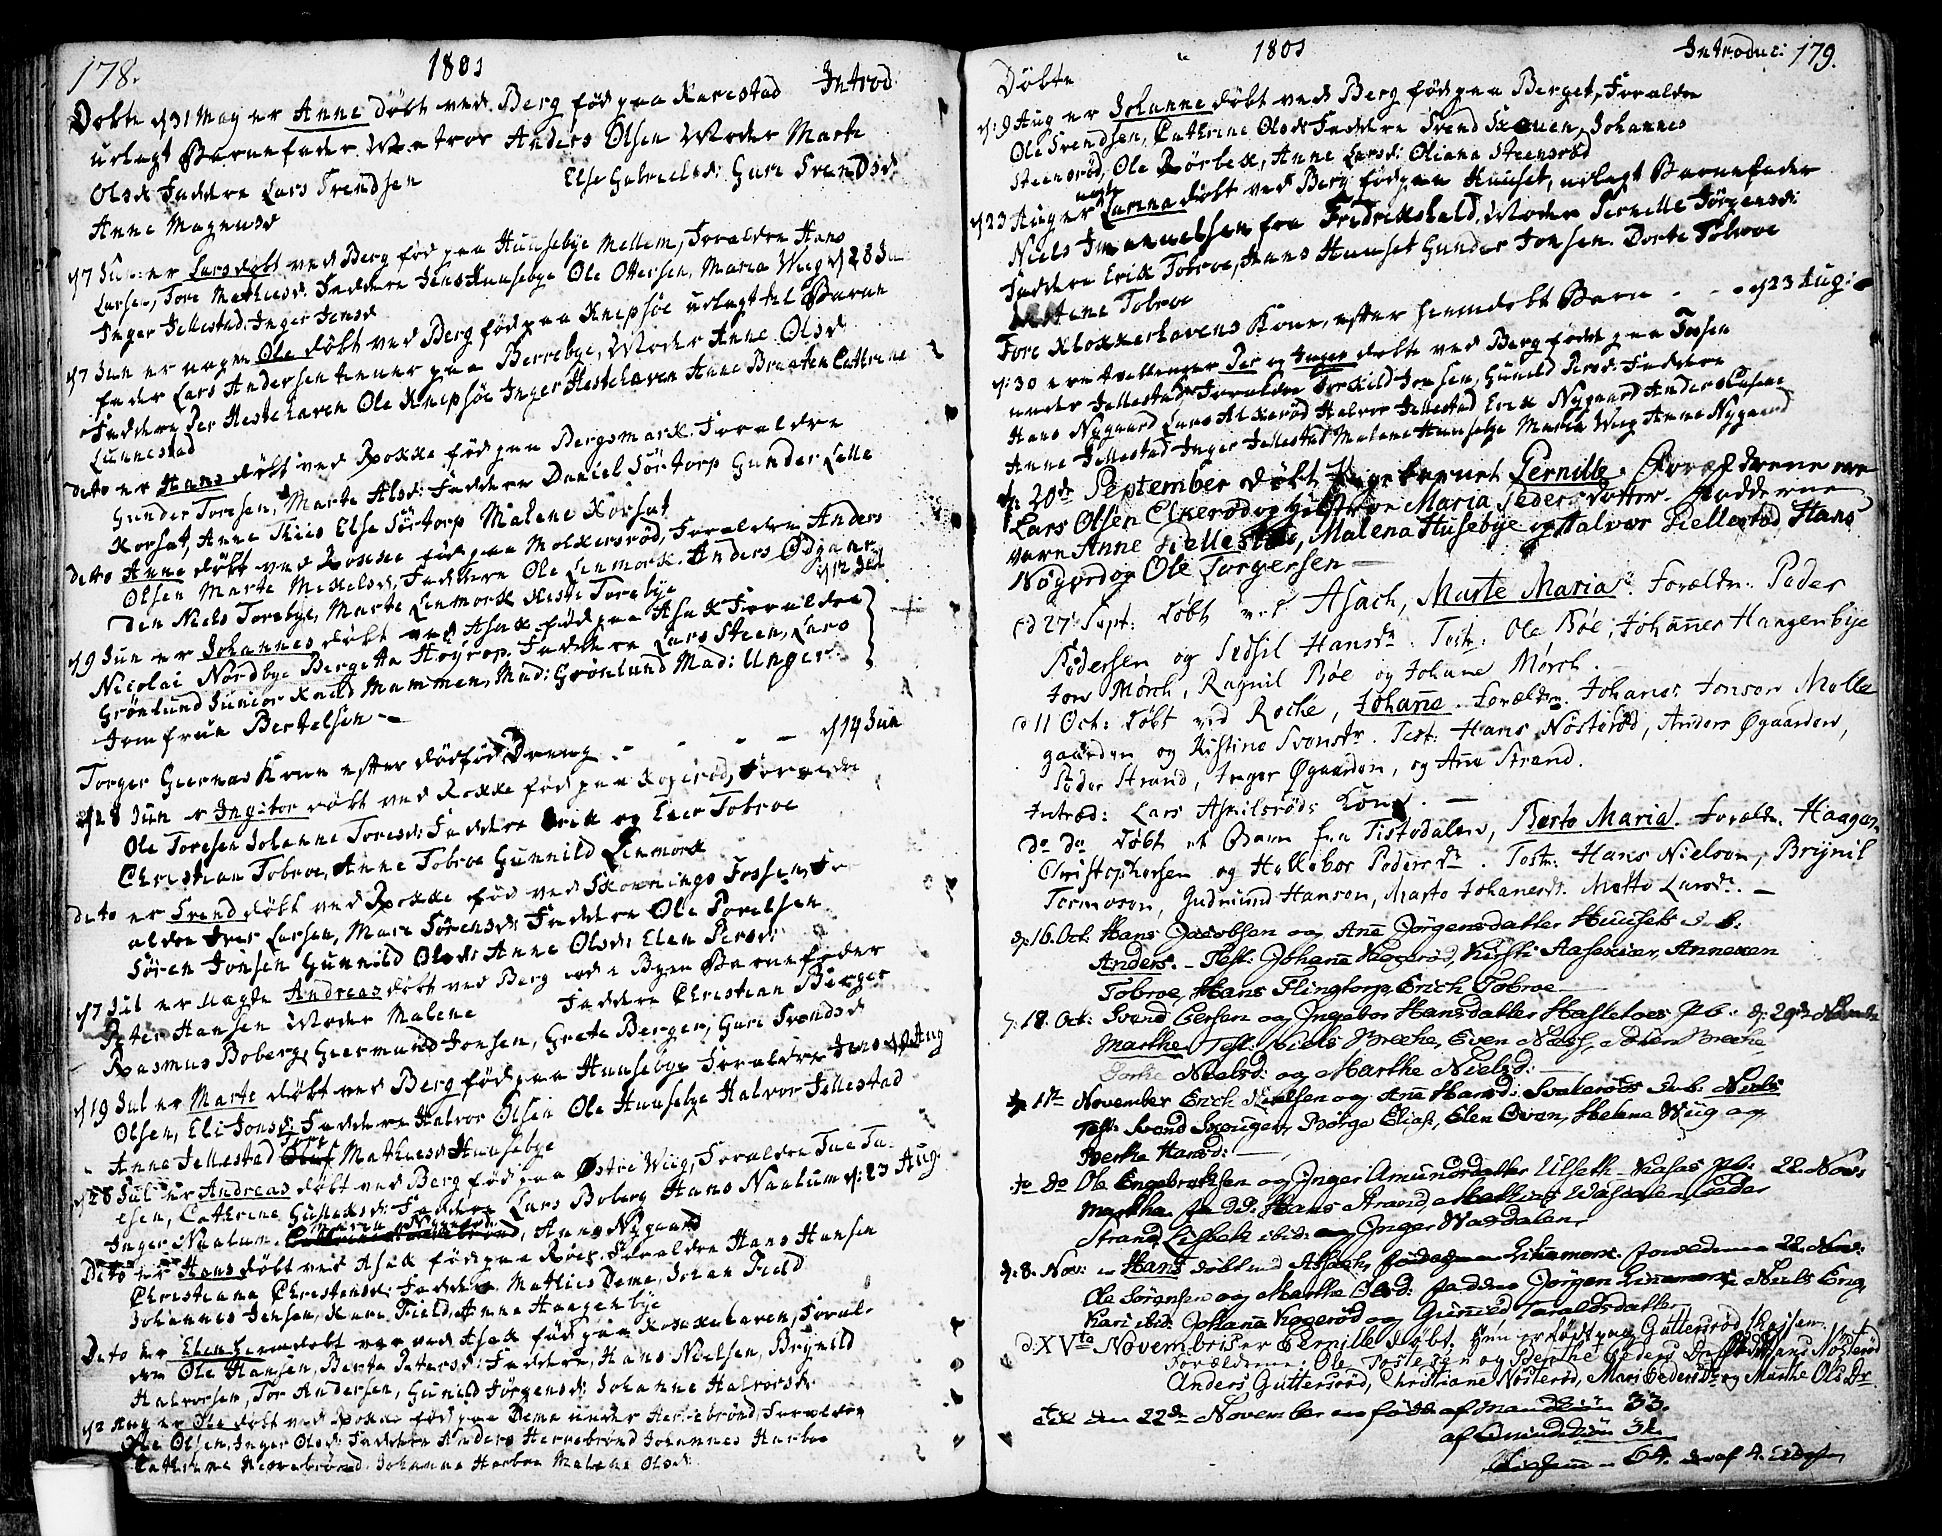 178.
1801
Introd
Døbte d 31 May er Anne døbt ved Berg fød paa Karestad
udlagt Barnefader Matros Anders Olsen Moder Marte
Olsd Faddere Lars Trendsen Else Gabrielsd: Guri Svendsd.
Anne Magnusd
d 7 Jun: er Lars døbt ved Berg fød paa Huusebye Mellem, Foraldre Hans
Larsen, Tore Mathiesd: Faddere Jens Huusebye Ole Ottersen, Maria Wiig d 28 Ju
Inger Jellestad, Inger Jensd
d 7 Jun er uægte Ole døbt ved Berg fød paa Knepsøe udlagt til Barne
fader Lars Andersen tienner paa Berrebye, Moder Anne Olsd
Faddere Per Hestehaven Ole Knepsøe Inger Hestehaven Anne Braaten Cathrine
Lunnestad
dito er Hans døbt ved Rokke fød paa Bergsmark. Foraldre
Gunder Toresen, Marte Alsd: Faddere Daniel Sørtorp Gunder Lille
Korsat, Anne Thiis Else Sørtorp Malene Korsat
dito Anne døbt ved Rokke fød paa Molkersrød, Foraldre Anders
Olsen Marte Mikelsd, Faddere Ole Linmork. Anders Ødgaar
den Niels Torebye, Marte Linmork Kisti Torebye d 12 Jul
d 9 Jun er Johannes døbt ved Asak fød paa Asak Foraldre
Nicolai Nordbye Bergetta Høyrop. Faddere Lars Steen, Lars
Grønlund Junior Knud Mammen, Mad: Grønlund Mad: Unger.
Jomfrue Bertelsen
Torger Giernas Kone efter dødfød Dreng - - - d 14 Jun
d 28 Jun er Ingebor døbt ved Rokke fød paa Kogerød, Foraldre
Ole Toresen Johanne Toresd: Faddere Erik og Iver Tobroe
Christian Tobroe, Anne Tobroe Gunnild Linmork
dito er Svend døbt ved Rokke fød ved Skonnings Fossen, For
aldre Iver Larsen, Mari Sørensd: Faddere Ole Povelsen
Søren Jonsen Gunnild Olsd: Anne Olsd: Elen Persd:
d 7 Jul er uægte Andreas døbt ved Berg ude i Byen Barnefader
Peter Hansen Moder Malene Faddere Christian Bierger
Rasmus Boberg, Giermund Jonsen, Grete Berger, Guri Svendsd
d 19 Jul er Marte døbt ved Berg fød paa Huusebye Foraldre Jens d 9 Aug
Olsen, Eli Jonsd: Faddere Halvor Olsen Ole Huusebye Halvor Jellestad
Anne Jellestad Tore Mathiesd Huusebye
d 26 Jul er Andreas døbt ved Berg fød paa Østre Wiig, Foraldre Tue Tu
esen, Cathrine Gulichsd: Faddere Lars Boberg Hans Naalum d: 23 Aug
Inger Naalum Maren Nygaard, Anne Nygaard
Dito er Hans døbt ved Asak fød paa Røer, Foraldre Hans Hansen
Christiana Christensd: Faddere Mathies Deme, Johan Field
Johannes Jensen, Kari Field, Anne Haagenbye
Dito er Elen hiemdøbt var ved Asak fød paa Klokkehaven, Foral-
dre Ole Hansen, Berte Petersd: Faddere, Hans Nielsen, Brynild
Halvorsen, Tor Andersen, Gunild Jørgensd: Johanne Halvorsd.
d 2 Aug er Ole døbt ved Rokke fød paa Deme under Herrebrønd, Foraldre
Ole Olsen, Inger Olsd: Faddere Anders Herrebrønd Johannes Harboe
Cathrine Herrebrønd. Johanne Harboe Malene Olsd:
1801
Introduc: 179.
Døbte
d: 9 Aug er Johanne døbt ved Berg fød paa Berget, Foraldre
Ole Svendsen, Cathrine Olsd: Faddere Svend Skouen, Johannes
Steensrød, Ole Rørbek, Anne Larsd: Oliana Steensrød
d 23 Aug er uægte Larina døbt ved Berg fød paa Huuset, udlagt Barnefader
Niels Imanuelsen fra Fredrikshald, Moder Pernille Jørgensd:
Faddere Erik Tobroe, Hans Huuset Gunder Jonsen. Dorte Tobroe
Anne Tobroe
Tore Klokkerhavens Kone, efter hiemdøbt Barn - - d 23 Aug:
d: 30 ere tvillinger Per og Inger døbte ved Berg fødde paa Fosen
under Jellestad Foraldre Torkild Jonsen, Gunild Persd: Faddere
Hans Nygaard Lars Alkerød Halvor Jellestad Erik Nygaard Anders
Anne Jellestad Inger Jellestad Malene Huusebye Maria Wiig Anne Nygaard
d: 20de September døbt Pigebarnet Pernille. Foræledrene ere
Lars Olsen Elkerød og Hustroe Maria Peders dotter. Fadderne
vare Anne Fiellestad, Malena Husebye og Halvor Fiellestad Hans
Nøgord og Ole Torgersen
d 27 Sept: døbt ved Asach, Marte Maria. Foreldr. Peder
Pedersen og Sidsil Hansdr. Test: Ole Bøe, Johannes Hangenbye
Jens Mørch, Ragnil Bøe og Johane Mørch.
d 11 Oct: døbt ved Rocke, Johane. Foreldr. Johanes Jonsen Molle
gaarden og Kistine Svensdr. Test: Hans Nosterød, Anders Øgaarden,
Peder Strand, Inger Øgaarden, og Ane Strand.
Introd: Lars Aspilsrøds Kone.
do do døbt et Barn fra Tistedalen, Berte Maria. Foreldr. Haagen
Christophersen og Helleber Pedersdr. Test: Hans Nielsen, Brynil
Tormoson, Gudmund Hanson, Marte Johanesdr. Mette Larsdr.
d. 16. Oct. Hans Jacobsen og Ane Jørgensdatter Huusets d. b.
Anders. - Test: Johane Kogerød, Kirsti Aasekiær, Anne
Tobroe, Hans Flingtorp, Erich Tobroe
d: 18. Oct: Svend Eversen og Ingebor Hansdatter Hasletoes P.b.: d. 29de November
Marthe. Test: Niels Breche, Even Næss, Søren Breche,
Nielsd: og Marthe Nielsd:
d. 1ste November Erich Nielsen og Ane Hansd: d.b. Niels
Test: Svend Skougen, Børge Elias, Elen Even, Helene Wiig og
Berthe Hansd:
do do Ole Engebrethsen og Inger Amundsdatter Ulseth P.b. 22. Nov:
Martha. Fadd: Hans Strand, Mathis Wasdalen, Peder
Strand, Lisbeth ibid. og Inger Wasdalen.
d. 8. Nov: er Hans døbt ved Assach, fød paa Linamork. Forældrene 22. Nov:
Ole Sørensen og Marthe Olsd: Faddere Jørgen Linnemork, Niels Eng
Kari ibid. Johana Kogerød og Guneld Taraldsdatter,
d: XVte Novembris er Pernille døbt. Hun er født paa Guttersrød
Forældrene: Ole Tostesen og Berthe Peders Dr. Hans Nosterød
Anders Guttersrød, Christiane Nosterød, Mari Pedersdr. og Marthe Ols Dr.
til den 22de November er født af Mandkiøn 33.
af Qvindekiøn 31.
64. deraf 4.